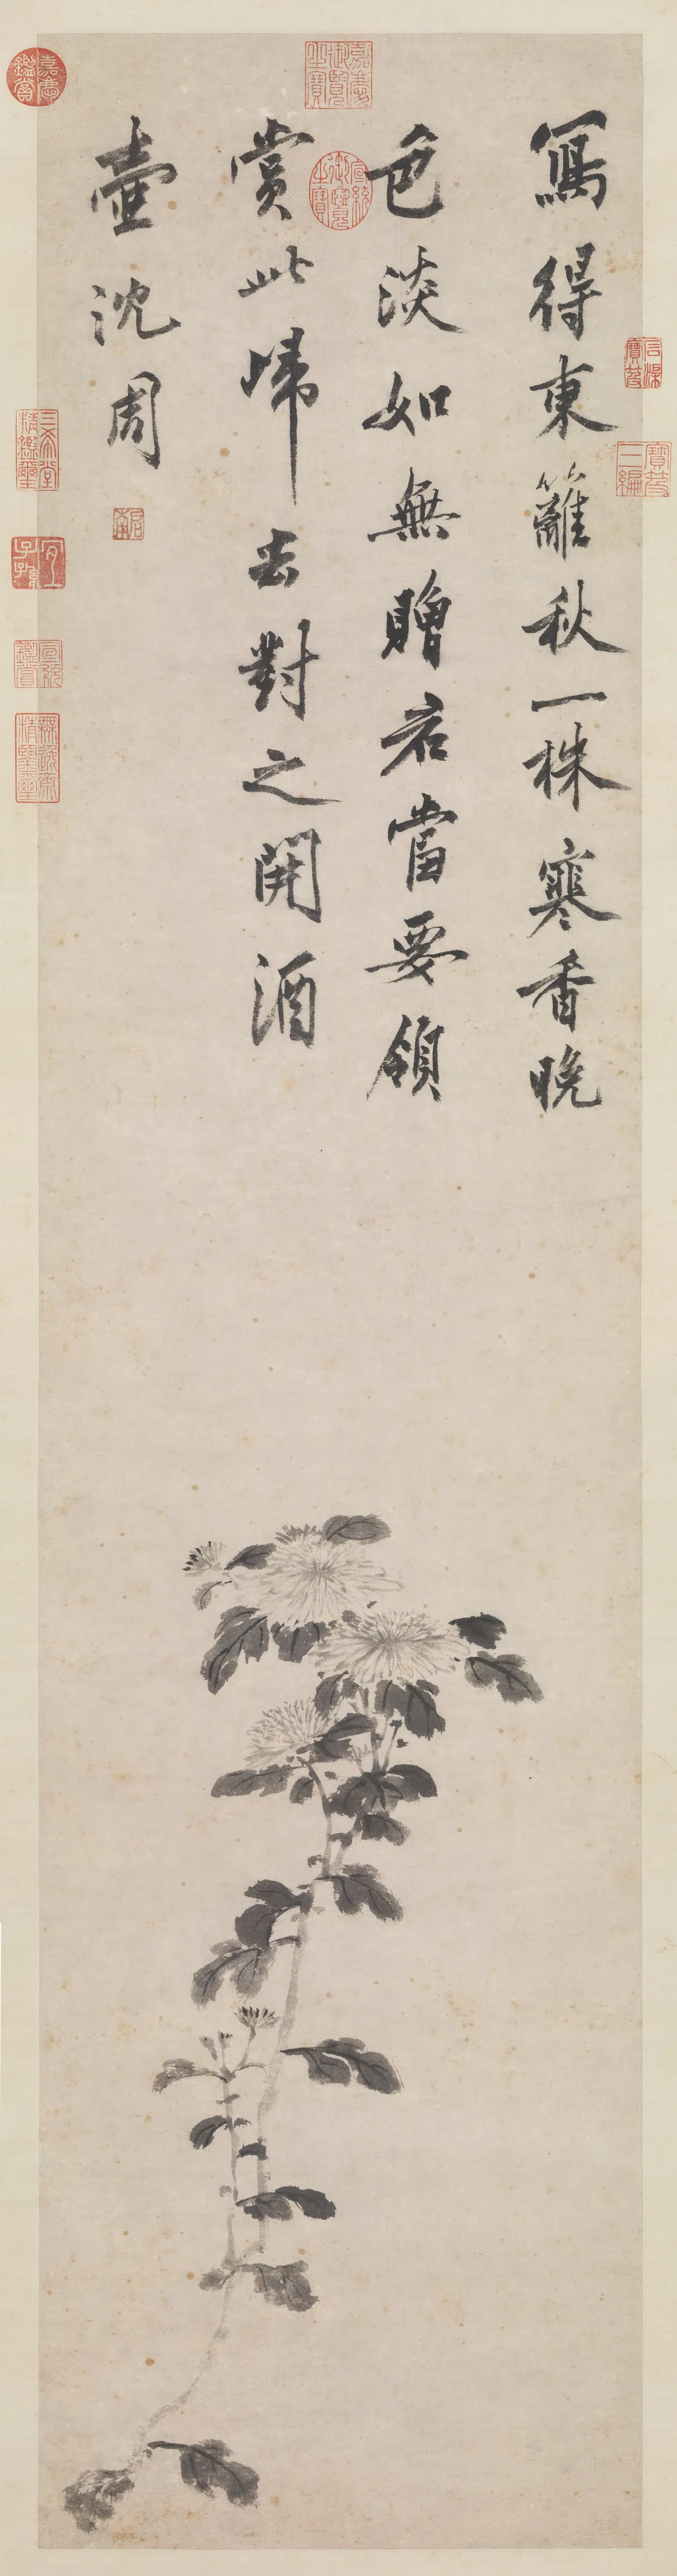 寫得東籬秋一株寒香晚
色淡如無贈君當要領
賞此歸去對之開酒
壺沈周
啟南
嘉慶御覽之寶
宣統御覽之寶
嘉慶鑑賞
石渠寶笈
寶笈三編
三希堂精鑑璽
宜子孫
宣統鑑賞
無逸齋精鑑璽